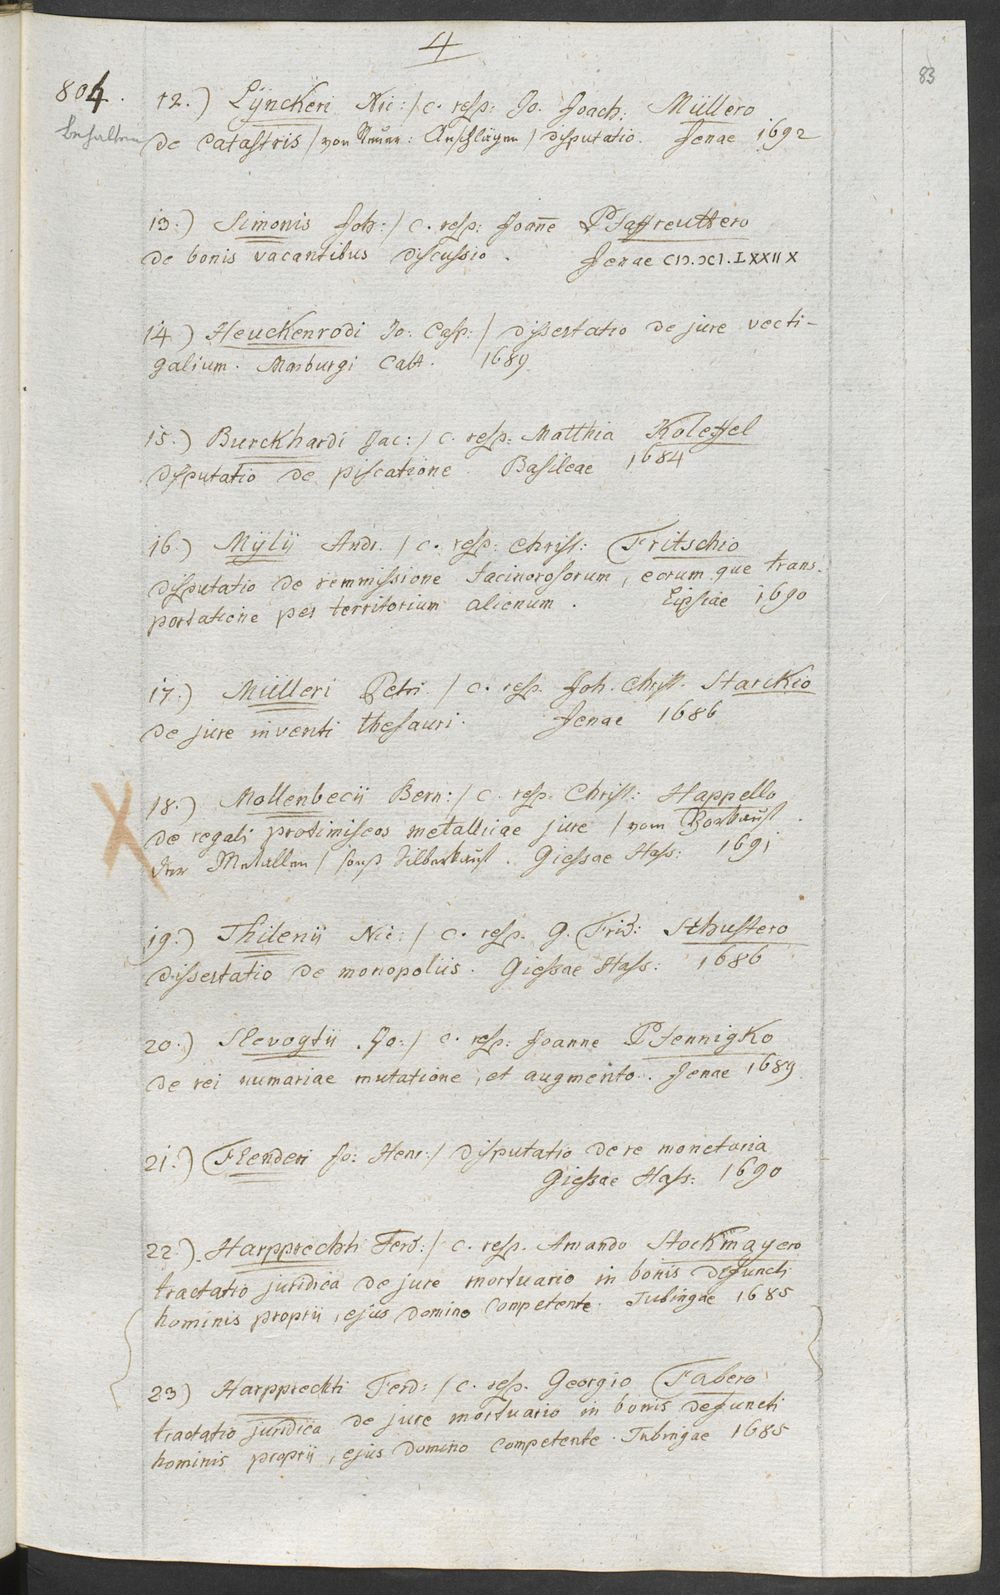 4
83
804. 12.) Lÿnckeri Nic:/ c. resp: Jo. Joach: Müllero
behalten
de catastris / von Steuer: Anschlägen / disputatio. Jenae 1692
13.) Simonis Joh:/ c. resp: Joañe Pfaffreuttero
de bonis vacantibus discussio. Jenae CIↃ.ↃCI.LXXIIX
14) Heuckenrodi Jo: Casp:/ dissertatio de jure vecti-
galium. Marburgi Catt. 1689
15.) Burckhardi Jac:/ c. resp: Matthia Koleffel
disputatio de piscatione. Basileae 1684
16.) Mÿlÿ Andr. / c. resp: Christ: Fritschio
disputatio de remmissione facinorosorum, eorum que trans-
portatione per territorium alienum. Lipsiae 1690
17.) Mülleri Petri. / c. resp. Joh. Christ. Starckio
de jure inventi thesauri. Jenae 1686
18.) Mollenbecii Bern:/ c. resp. Christ: Happello
de regali protimiseos metallicae jure / vom Vorkauf
der Metallen / sonst Silberkauf. Giessae Hass: 1691
19.) Thilenii Nic:/ c. resp. G. Frid: Schustero
dissertatio de monopoliis. Giessae Hass: 1686
20.) Slevogtii Jo:/ c. resp: Joanne Pfennigko
de rei numariae mutatione, et augmento. Jenae 1689
21.) Flenderi Jo: Henr:/ disputatio de re monetaria
Giessae Hass: 1690
22.) Harpprechti Ferd:/ c. resp. Amando Stockmayero
tractatio juridica de jure mortuario in bonis defuncti
hominis proprii, ejus domino competente. Tubingae 1685
23) Harpprechti Ferd: / c. resp. Georgio Fabero
tractatio juridica de jure mortuario in bonis defuncti
hominis proprii, ejus domino competente. Tubingae 1685